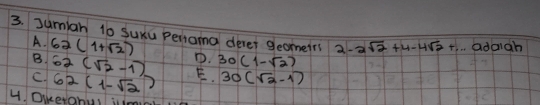 3. Jumlah 10 suku pertama deret geometri 2-2√2 +4-4√2+... adalah
A. 62 (1+√2) D. 30 (1-√2)
B. 62 (√2 -1) E. 30 (√2 -1)
C. 62 (1-√2)
4. Diketahui